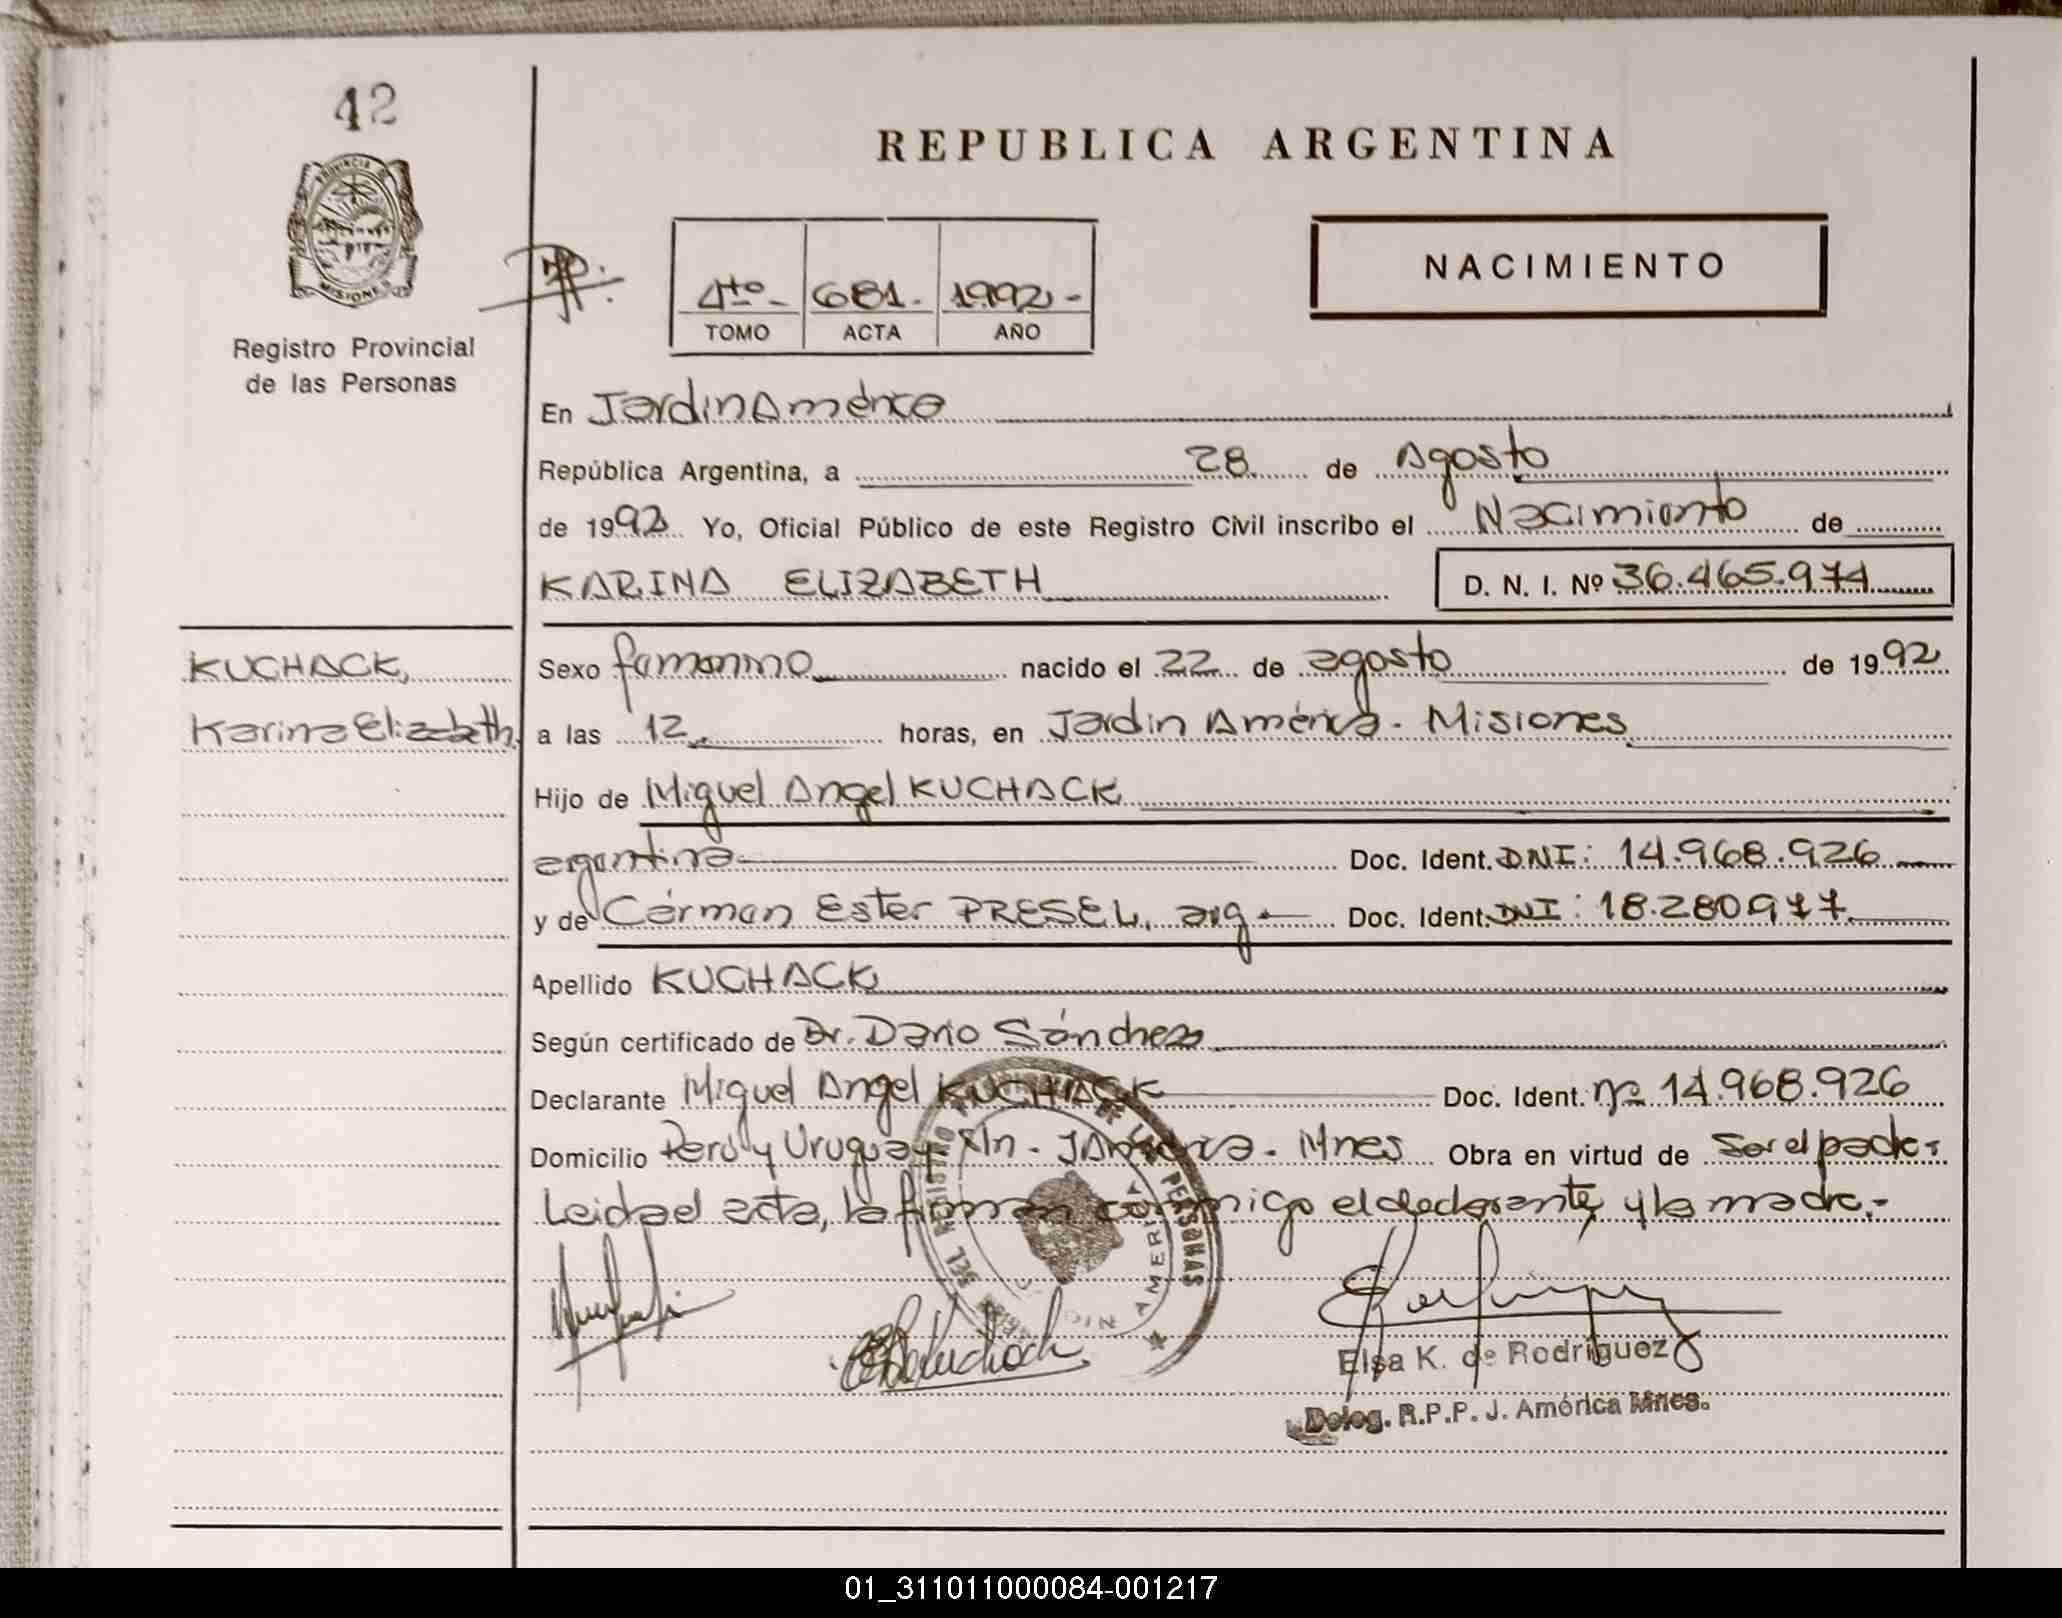 42
REPUBLICA ARGENTINA
PROVINCIA DE
MISIONES
Registro Provincial
de las Personas
4to - 681 - 1992 -
TOMO ACTA AÑO
NACIMIENTO
En Jardin América
República Argentina, a 28 de Agosto
de 1992 Yo, Oficial Público de este Registro Civil inscribo el Nacimiento de
KARINA ELIZABETH D. N. I. Nº 36.465.974
KUCHACK,
Karina Elizabeth
Sexo femenino nacido el 22 de agosto de 1992
a las 12 horas, en Jardin América - Misiones
Hijo de Miguel Angel KUCHACK
argentina Doc. Ident. DNI: 14.968.926
y de Cármen Ester PRESEL, arg Doc. Ident. DNI: 18.280.977
Apellido KUCHACK
Según certificado de Dr. Dario Sánchez
Declarante Miguel Angel KUCHACK Doc. Ident. Nº 14.968.926
Domicilio Perú y Uruguay S/n - J América - Mnes Obra en virtud de ser el padre
Leida el acta, la firman conmigo el declarante y la madre.-
DEL REGISTRO DE LAS PERSONAS
AMERICA
Elsa K. de Rodriguez
Deleg. R.P.P. J. América Mnes.
01_311011000084-001217